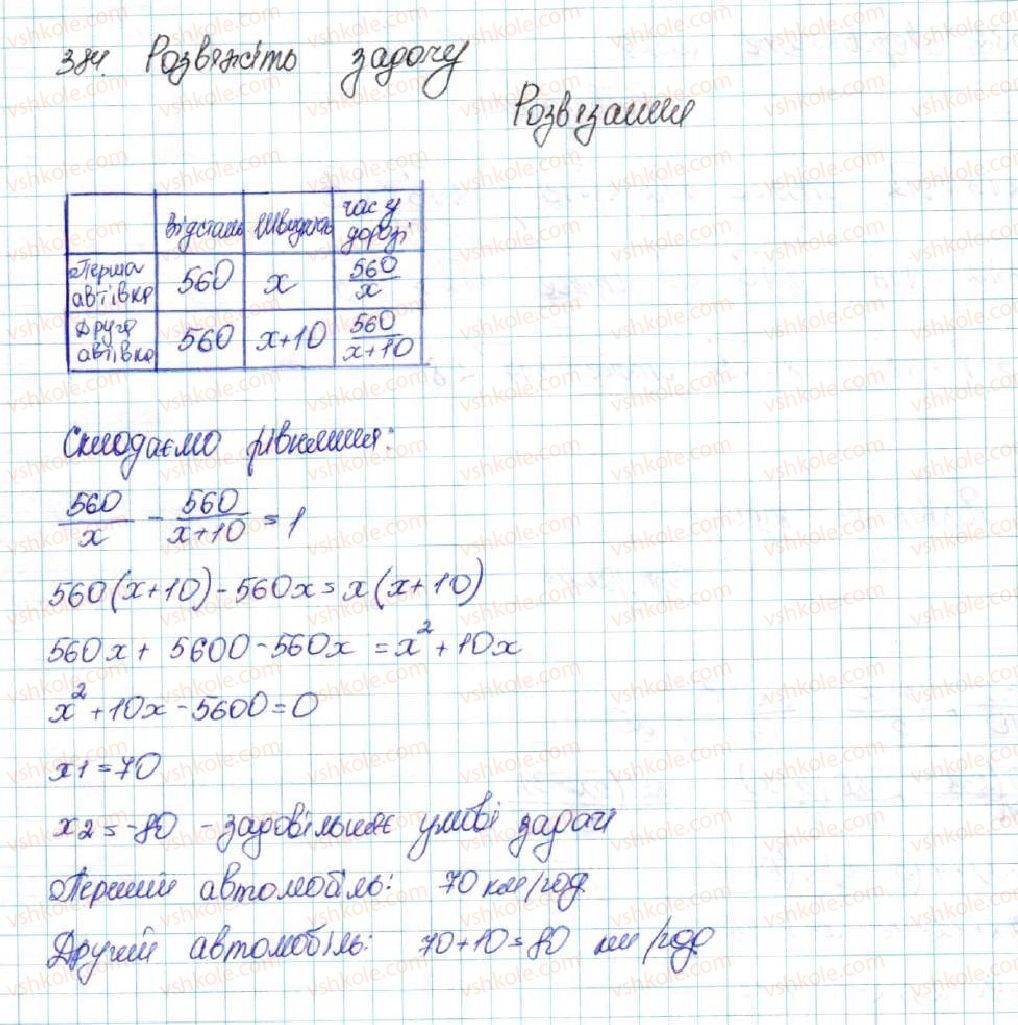 384. Розвяжіть задачу
Розвязання
Відстань Швидкість час у дорозі
Перша автівка 560 x 560/x
Друга автівка 560 x+10 560/(x+10)
Складаємо рівняння:
560/x - 560/(x+10) = 1
560(x+10)-560x=x(x+10)
560x+5600-560x=x²+10x
x²+10x-5600=0
x1=70
x2=-80 - задовільняє умові задачі
Перший автомобіль: 70 км/год
Другий автомобіль: 70+10=80 км/год
vshkole.com